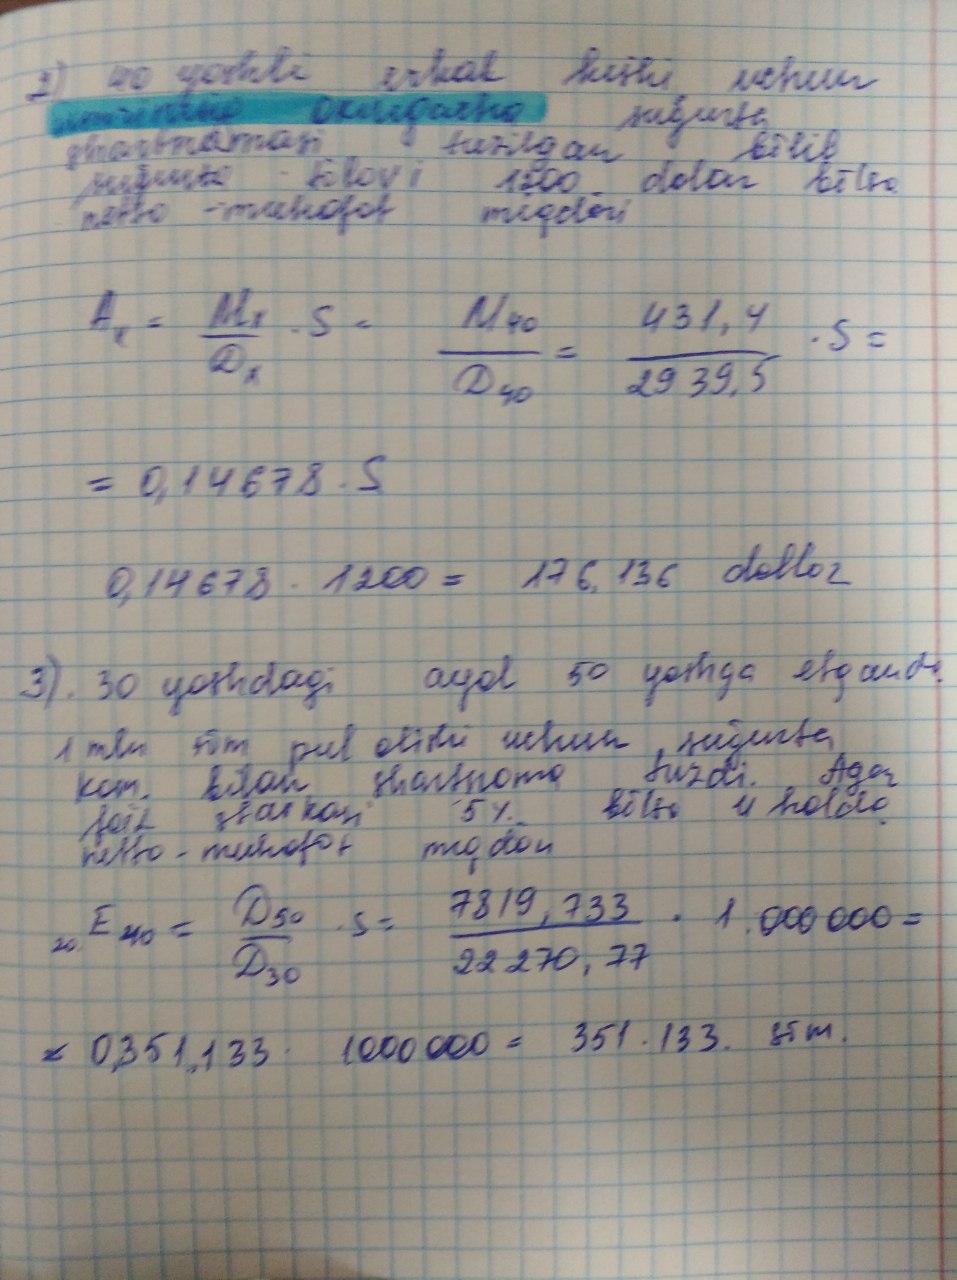 2) 40 yoshli erkak kishi uchun
sug'urta
shartnomasi tuzilgan bo'lib
sug'urta to'lovi 1200 dolar bo'lsa
netto - mukofot miqdori
Aₓ = Mₓ / Dₓ · S = M₄₀ / D₄₀ = 431,4 / 2939,5 · S =
= 0,14678 · S
0,14678 · 1200 = 176,136 dollar
3). 30 yoshdagi ayol 50 yoshga etganda
1 mln so'm pul olishi uchun sug'urta
kom. bilan shartnoma tuzdi. Agar
foiz stavkasi 5%. bo'lsa u holda
netto - mukofot miqdori
₂₀.E₄₀ = D₅₀ / D₃₀ · S = 7819,733 / 22270,77 · 1.000000 =
= 0,351,133 · 1000000 = 351.133. so'm.